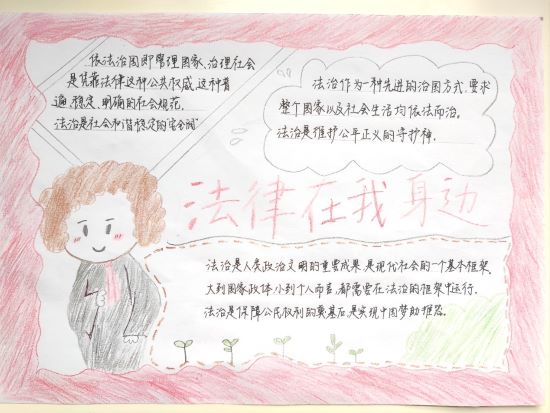 依法治国即管理国家、治理社会
是凭靠法律这种公共权威,这种普
遍、稳定、明确的社会规范。
法治是社会和谐稳定的"安全阀"
法治作为一种先进的治国方式,要求
整个国家以及社会生活均依法而治。
法治是维护公平正义的守护神.
法律在我身边
法治是人类政治文明的重要成果,是现代社会的一个基本框架.
大到国家政体,小到个人而言,都需要在法治的框架中运行.
法治是保障公民权利的奠基石,是实现中国梦助推器.